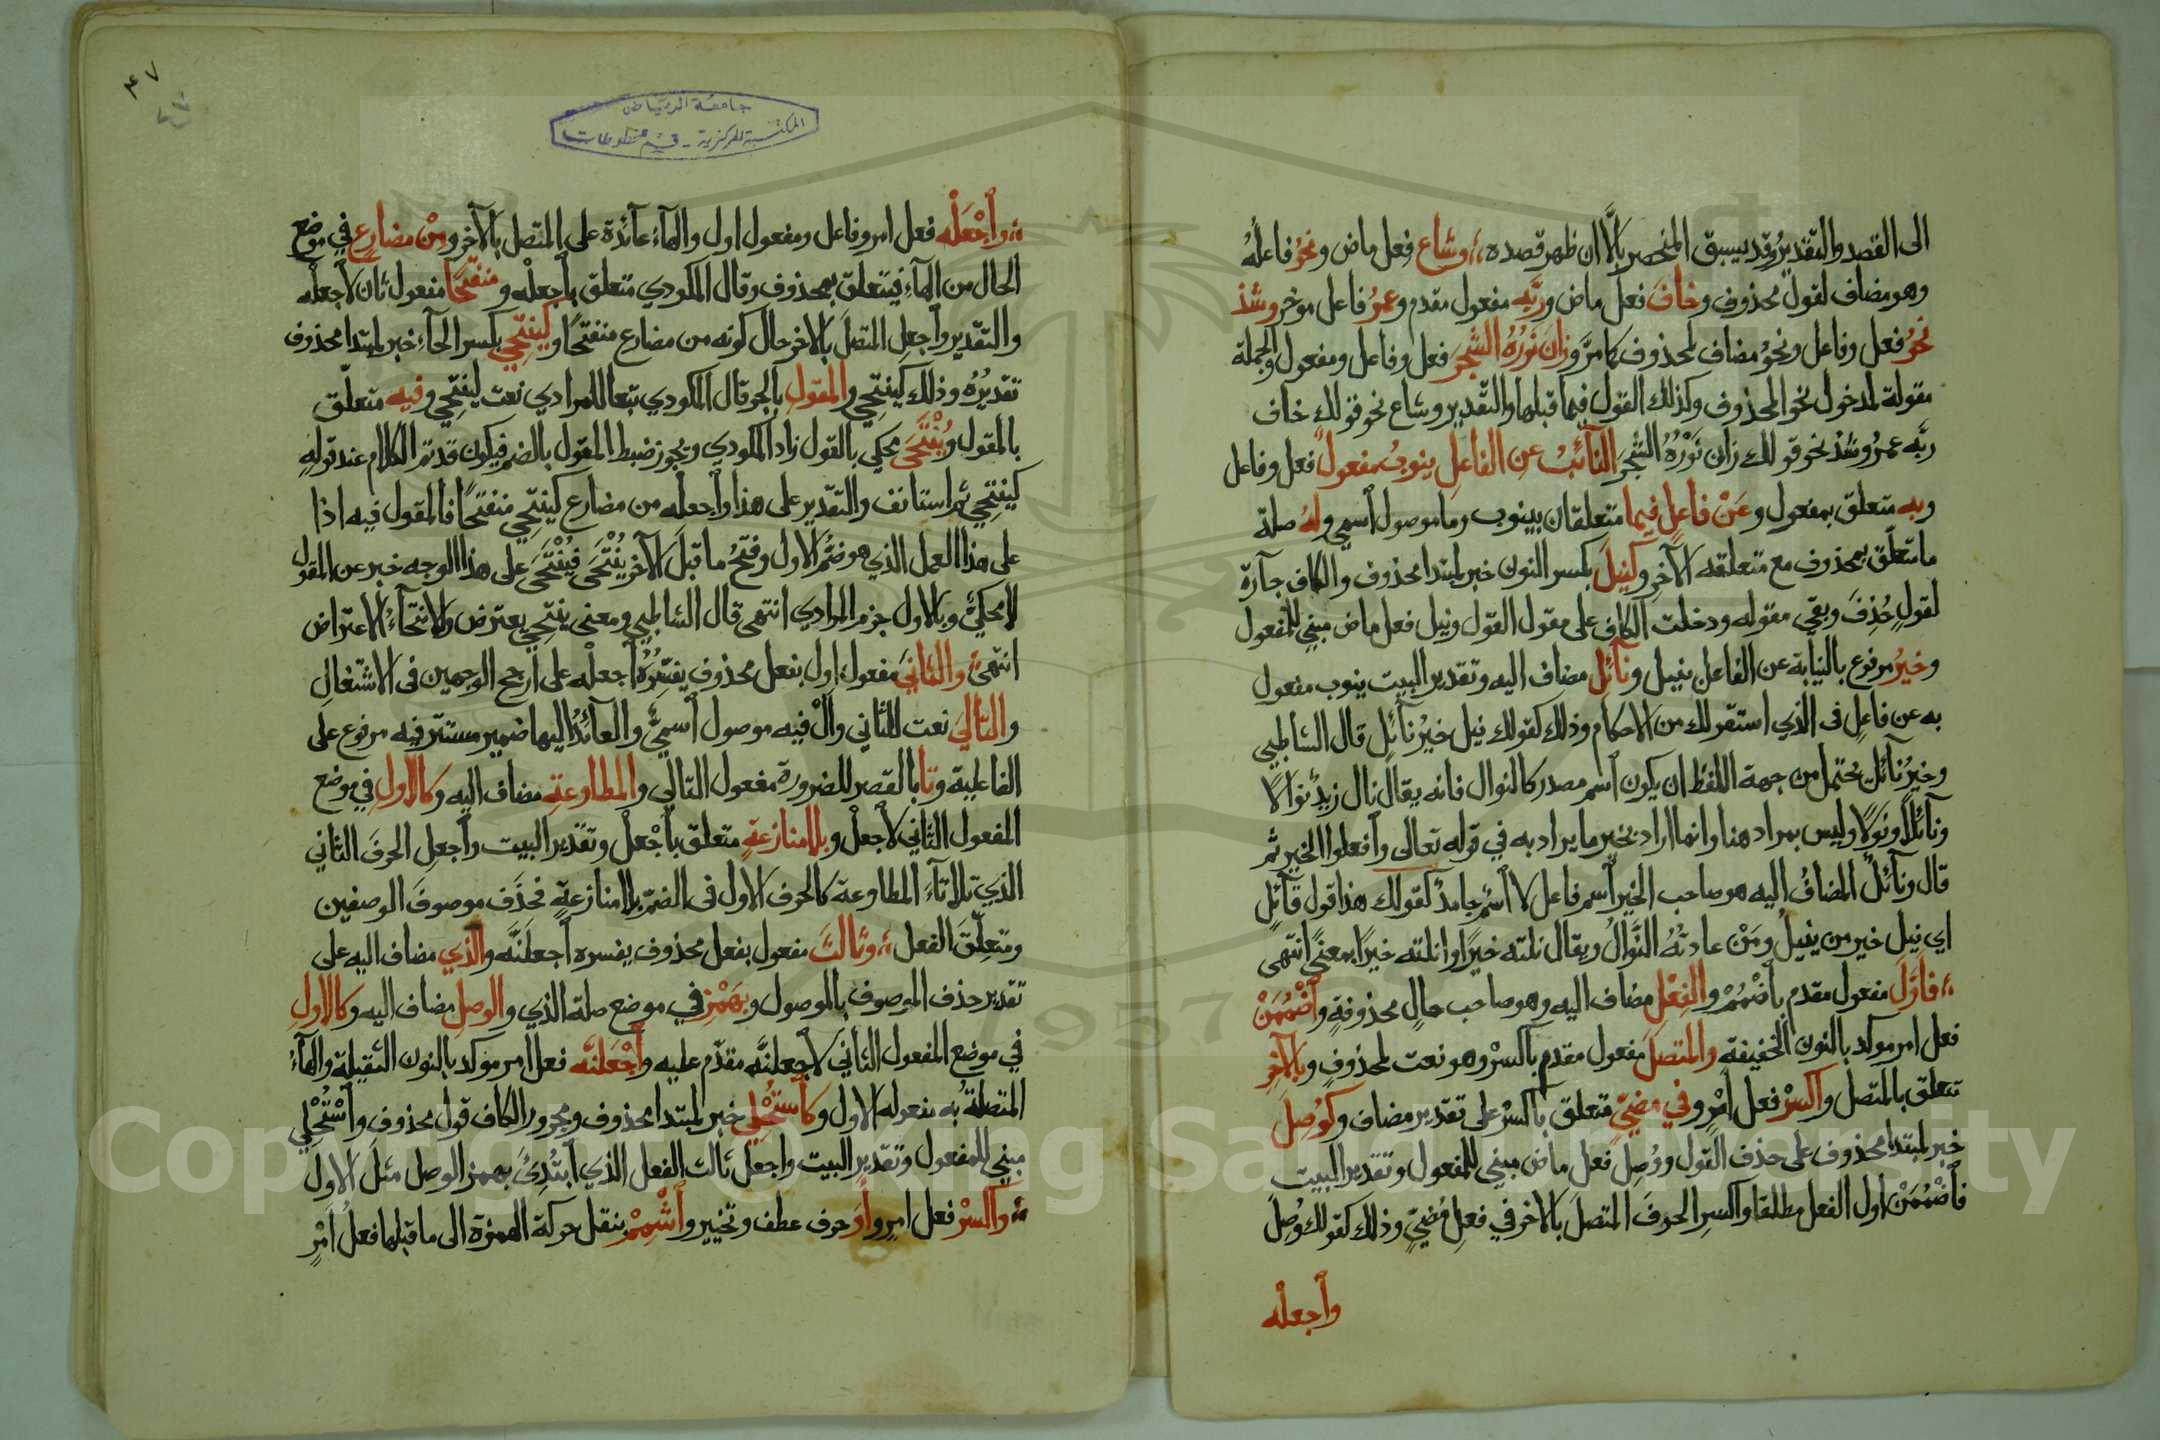 الى القصد والتقدير وقد يسبق المنحصر بالا ان ظهر قصده وشاع فعل ماض ونحو فاعله
وهو مضاف لقول محذوف وخاف فعل ماض وربه مفعول مقدم وعمر فاعل موخر وشذ
نحو فعل وفاعل ونحو مضاف لمحذوف كما مر وزان نوره الشجر فعل وفاعل ومفعول والجملة
مقولة لمدخول نحو المحذوف وكذلك القول فيما قبلها والتقدير وشاع نحو قولك خاف
ربه عمر وشذ نحو قولك زان نوره الشجر النائب عن الفاعل ينوب مفعول فعل وفاعل
وبه متعلق بمفعول وعن فاعل فيما متعلقان بينوب وما موصول اسمي وله صلة
ما متعلق بمحذوف مع متعلقه الآخر وكنيل بكسر النون خبر لمبتدا محذوف والكاف جارة
لقول حذف وبقي مقوله ودخلت الكاف على مقول القول ونيل فعل ماض مبني للمفعول
وخير مرفوع بالنيابة عن الفاعل بنيل ونائل مضاف اليه وتقدير البيت ينوب مفعول
به عن فاعل فى الذي استقر لك من الاحكام وذلك كقولك نيل خير نائل قال الشاطبي
وخير نائل يحتمل من جهة اللفظ ان يكون اسم مصدر كالنوال فانه يقال نال زيد نوالا
ونائلا ونولا وليس بمراد هنا وانما اراد بخير ما يراد به في قوله تعالى وافعلوا الخير ثم
قال ونائل المضاف اليه هو صاحب الخير اسم فاعل لا اسم جامد كقولك هذا قول قائل
اي نيل خير من ينيل ومن عادته النوال ويقال نلته خيرا وانلته خيرا بمعنى انتهى
فاول مفعول مقدم باضمم والفعل مضاف اليه وهو صاحب حال محذوفة واضممن
فعل امر موكد بالنون الخفيفة والمتصل مفعول مقدم باكسر وهو نعت لمحذوف وبالآخر
تتعلق بالمتصل واكسر فعل امر وفي مضي متعلق باكسر على تقدير مضاف وكوصل
خبر لمبتدا محذوف على حذف القول ووصل فعل ماض مبني للمفعول وتقدير البيت
فاضممن اول الفعل مطلقا واكسر الحرف المتصل بالاخر في فعل مضي وذلك كقولك وصل
واجعله
٤٧
جامعة الرياض
المكتبة المركزية - قسم مخطوطات
واجعله فعل امر وفاعل ومفعول اول والهاء عائدة على المتصل بالآخر ومن مضارع في موضع
الحال من الهاء فيتعلق بمحذوف وقال المكودي متعلق باجعله ومنفتحا مفعول ثان لاجعله
والتقدير واجعل المتصل بالاخر حال كونه من مضارع منفتحا وكينتحي بكسر الحاء خبر لمبتدا محذوف
تقديره وذلك كينتحي والمقول بالجر قال المكودي تبعا للمرادي نعت لينتحي وفيه متعلق
بالمقول وينتحى محكي بالقول زاد المكودي ويجوز ضبط المقول بالضم فيكون قد تم الكلام عند قوله
كينتحي ثم استانف والتقدير على هذا واجعله من مضارع كينتحي منفتحا فالمقول فيه اذا
على هذا العمل الذي هو ضم الاول وفتح ما قبل الآخر ينتحى فينتحى على هذا الوجه خبر عن المقول
لا محكي وبالاول جزم المرادي انتهى قال الشاطبي ومعنى ينتحي يعترض والانتحاء الاعتراض
انتهى والثاني مفعول اول بفعل محذوف يفسره اجعله على ارجح الوجهين فى الاشتغال
والتالي نعت للثاني وال فيه موصول اسمي والعائد اليها ضمير مستتر فيه مرفوع على
الفاعلية وتا بالقصر للضرورة مفعول التالي والمطاوعة مضاف اليه وكالاول في موضع
المفعول الثاني لاجعل وبلا منازعة متعلق باجعل وتقدير البيت واجعل الحرف الثاني
الذي تلا تاء المطاوعة كالحرف الاول فى الضم بلا منازعة فحذف موصوف الوصفين
ومتعلق الفعل وثالث مفعول بفعل محذوف يفسره اجعلنه والذي مضاف اليه على
تقدير حذف الموصوف بالموصول وبهمز في موضع صلة الذي والوصل مضاف اليه وكالاول
في موضع المفعول الثاني لاجعلنه مقدم عليه واجعلنه فعل امر موكد بالنون الثقيلة والهاء
المتصلة به مفعوله الاول وكاستحلي خبر لمبتدا محذوف ومجرور الكاف قول محذوف واستحلي
مبني للمفعول وتقدير البيت واجعل ثالث الفعل الذي ابتدئ بهمز الوصل مثل الاول
واكسر فعل امر واو حرف عطف وتخيير واشمم بنقل حركة الهمزة الى ما قبلها فعل امر
Copyright © King Saud University
1957